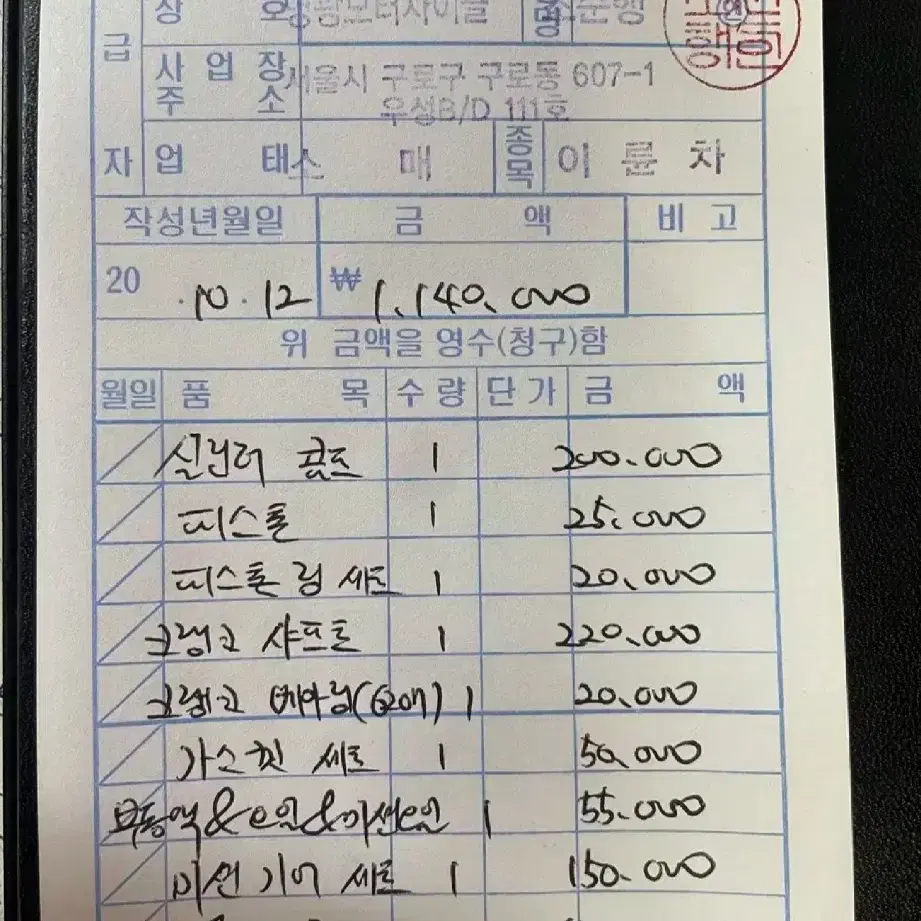 급 상 호 모터사이클
사 업 장 서울시 구로구 구로동 607-1
주 소 우성B/D 111호
자 업 태 소 매 종목 이 륜 차
작성년월일 금 액 비 고
20 . 10 . 12 ₩ 1,140,000
위 금액을 영수(청구)함
월일 품 목 수량 단가 금 액
실린더 1 200.000
피스톤 1 25.000
피스톤 링 세트 1 20.000
크랭크 샤프트 1 220.000
크랭크 베아링(2개) 1 20.000
가스켓 세트 1 50.000
부동액&오일&미션오일 1 55.000
미션 기어 세트 1 150.000